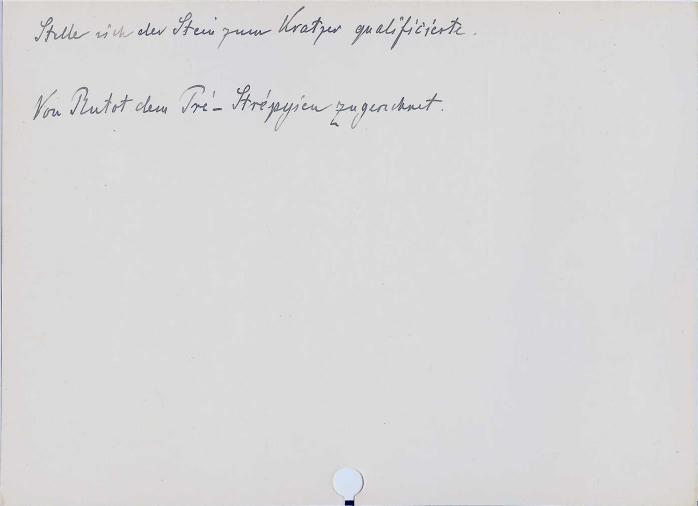 Stelle sich der Stein zum Kratzer qualificierte.
Von Rutot dem Pré-Strépyien zugerechnet.